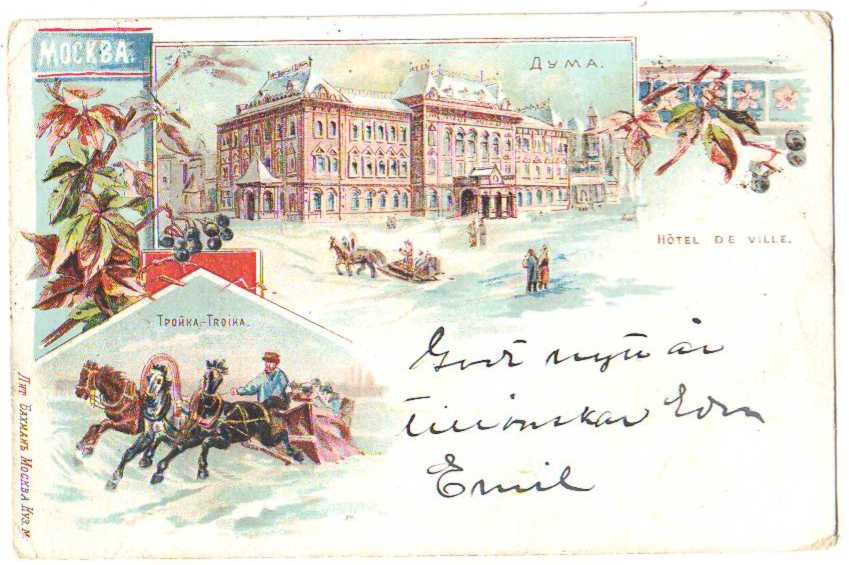 МОСКВА.
ДУМА.
HÔTEL DE VILLE.
ТРОЙКА.-TROÏKA.
Godt nytt år
tillönskar Eder
Emil
Лит Бахманъ Москва Куз м.